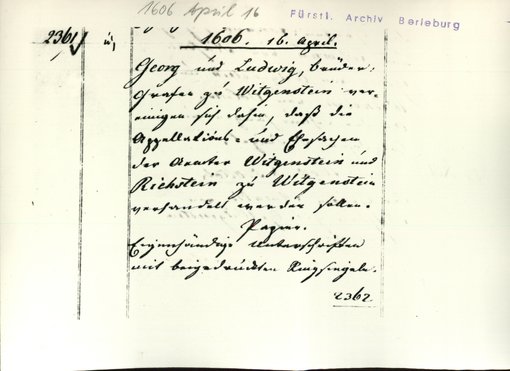 1606 April 16
Fürstl. Archiv Berleburg
2361
1606. 16. April.
Georg und Ludwig, brüder,
Grafen zu Witgenstein ver-
einigen sich dahin, daß die
Appellations- und Ehesachen
der Aemter Witgenstein und
Richstein zu Witgenstein
verhandelt werden sollen.
Papier.
Eigenhändige Unterschriften
mit beigedrückten Ringsiegeln.
2362